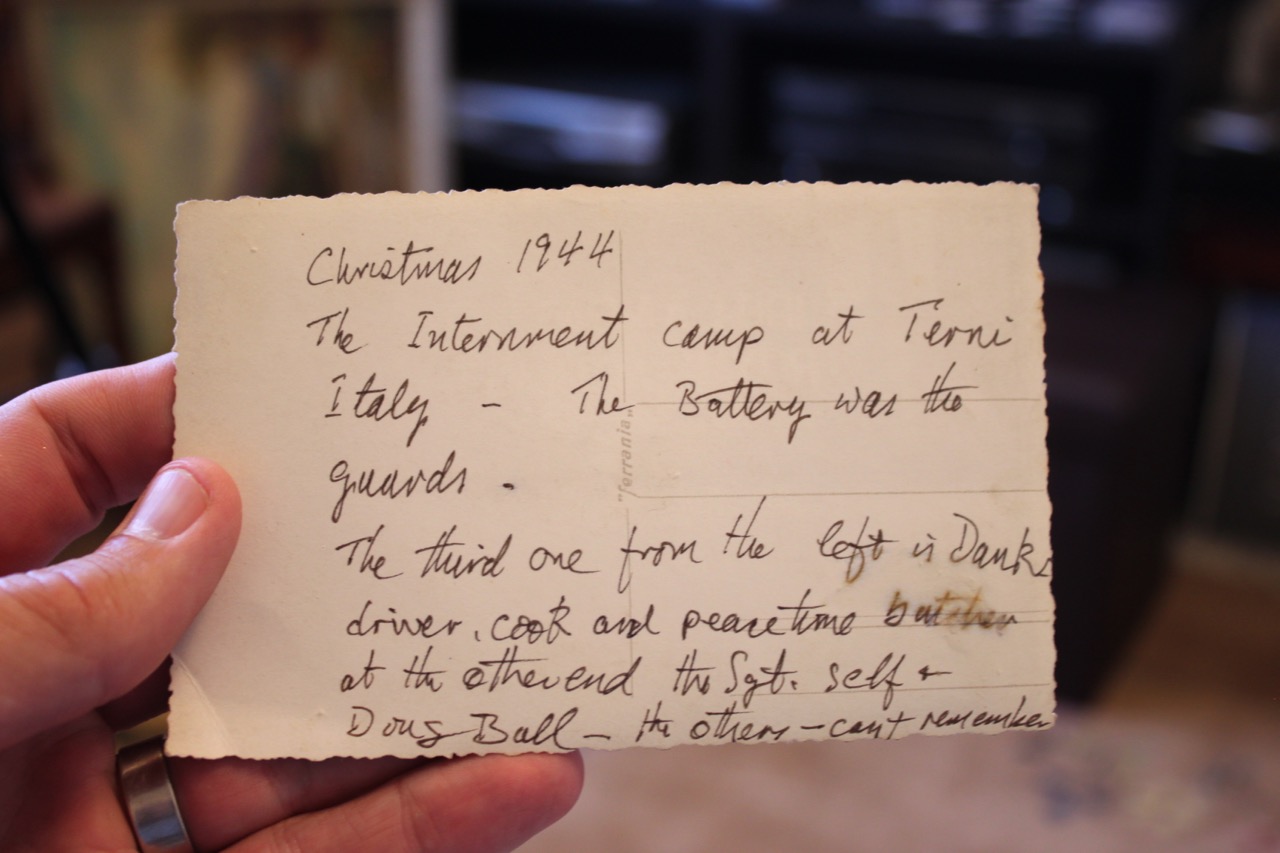 Christmas 1944
The Internment camp at Terni
Italy - The Battery was the
guards.
"ferrania"
The third one from the left is
driver, cook and peacetime butcher
at the other end the Sgt. self +
Doug Ball - the others - can't remember